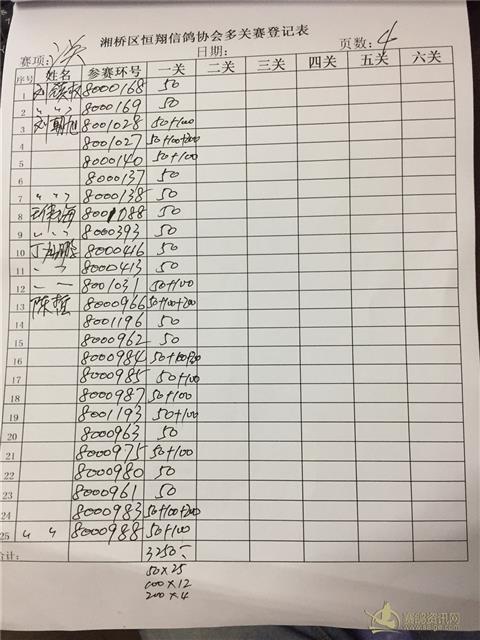 湘桥区恒翔信鸽协会多关赛登记表
赛项: 决 日期: 页数: 4
序号 姓名 参赛环号 一关 二关 三关 四关 五关 六关
1 8000168 50
2 〃 〃 8000169 50
3 8001028 50+100
4 8001027 50+100+200
5 8000140 50+100
6 8000137 50
7 〃 〃 8000138 50
8 8001088 50
9 〃 〃 8000393 50
10 8000416 50
11 〃 〃 8000413 50
12 8001031 50+100
13 陈哲 8000966 50+100+200
14 8001196 50
15 8000962 50
16 8000984 50+100+200
17 8000985 50+100
18 8000987 50+100
19 8001193 50+100
20 8000963 50
21 8000975 50+100
22 8000980 50
23 8000961 50
24 8000983 50+100+200
25 〃 〃 8000988 50+100
合计: 3250
50×25
100×12
200×4
赛鸽资讯网
www.saige.com